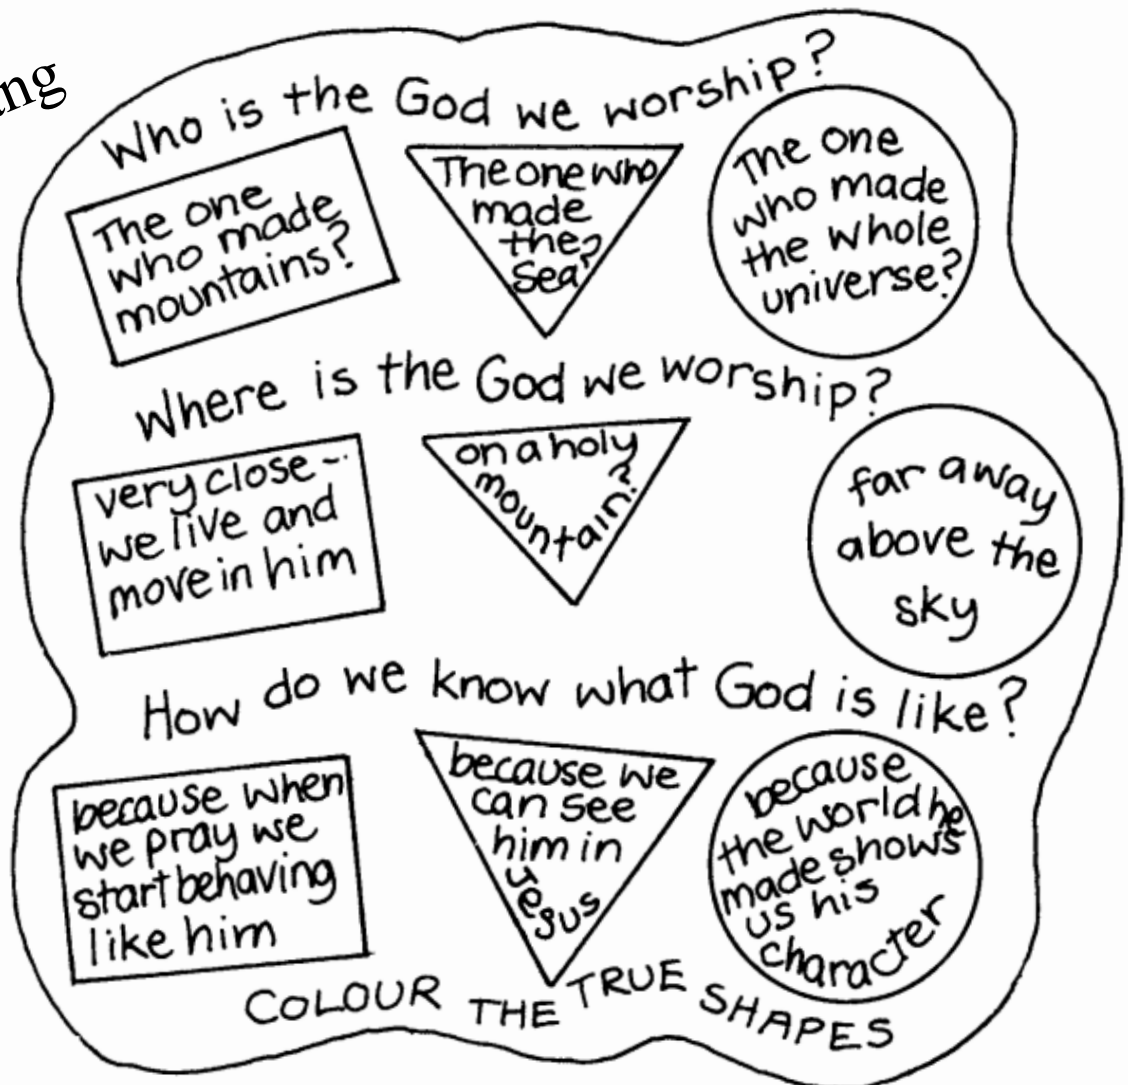 ang
Who is the God we worship?
The one
who made
mountains?
The one who
made
the
sea?
The one
who made
the whole
universe?
Where is the God we worship?
very close -
we live and
move in him
on a holy
mountain?
far away
above the
sky
How do we know what God is like?
because when
we pray we
start behaving
like him
because we
can see
him in
Jesus
because
the world he
made shows
us his
character
COLOUR THE TRUE SHAPES